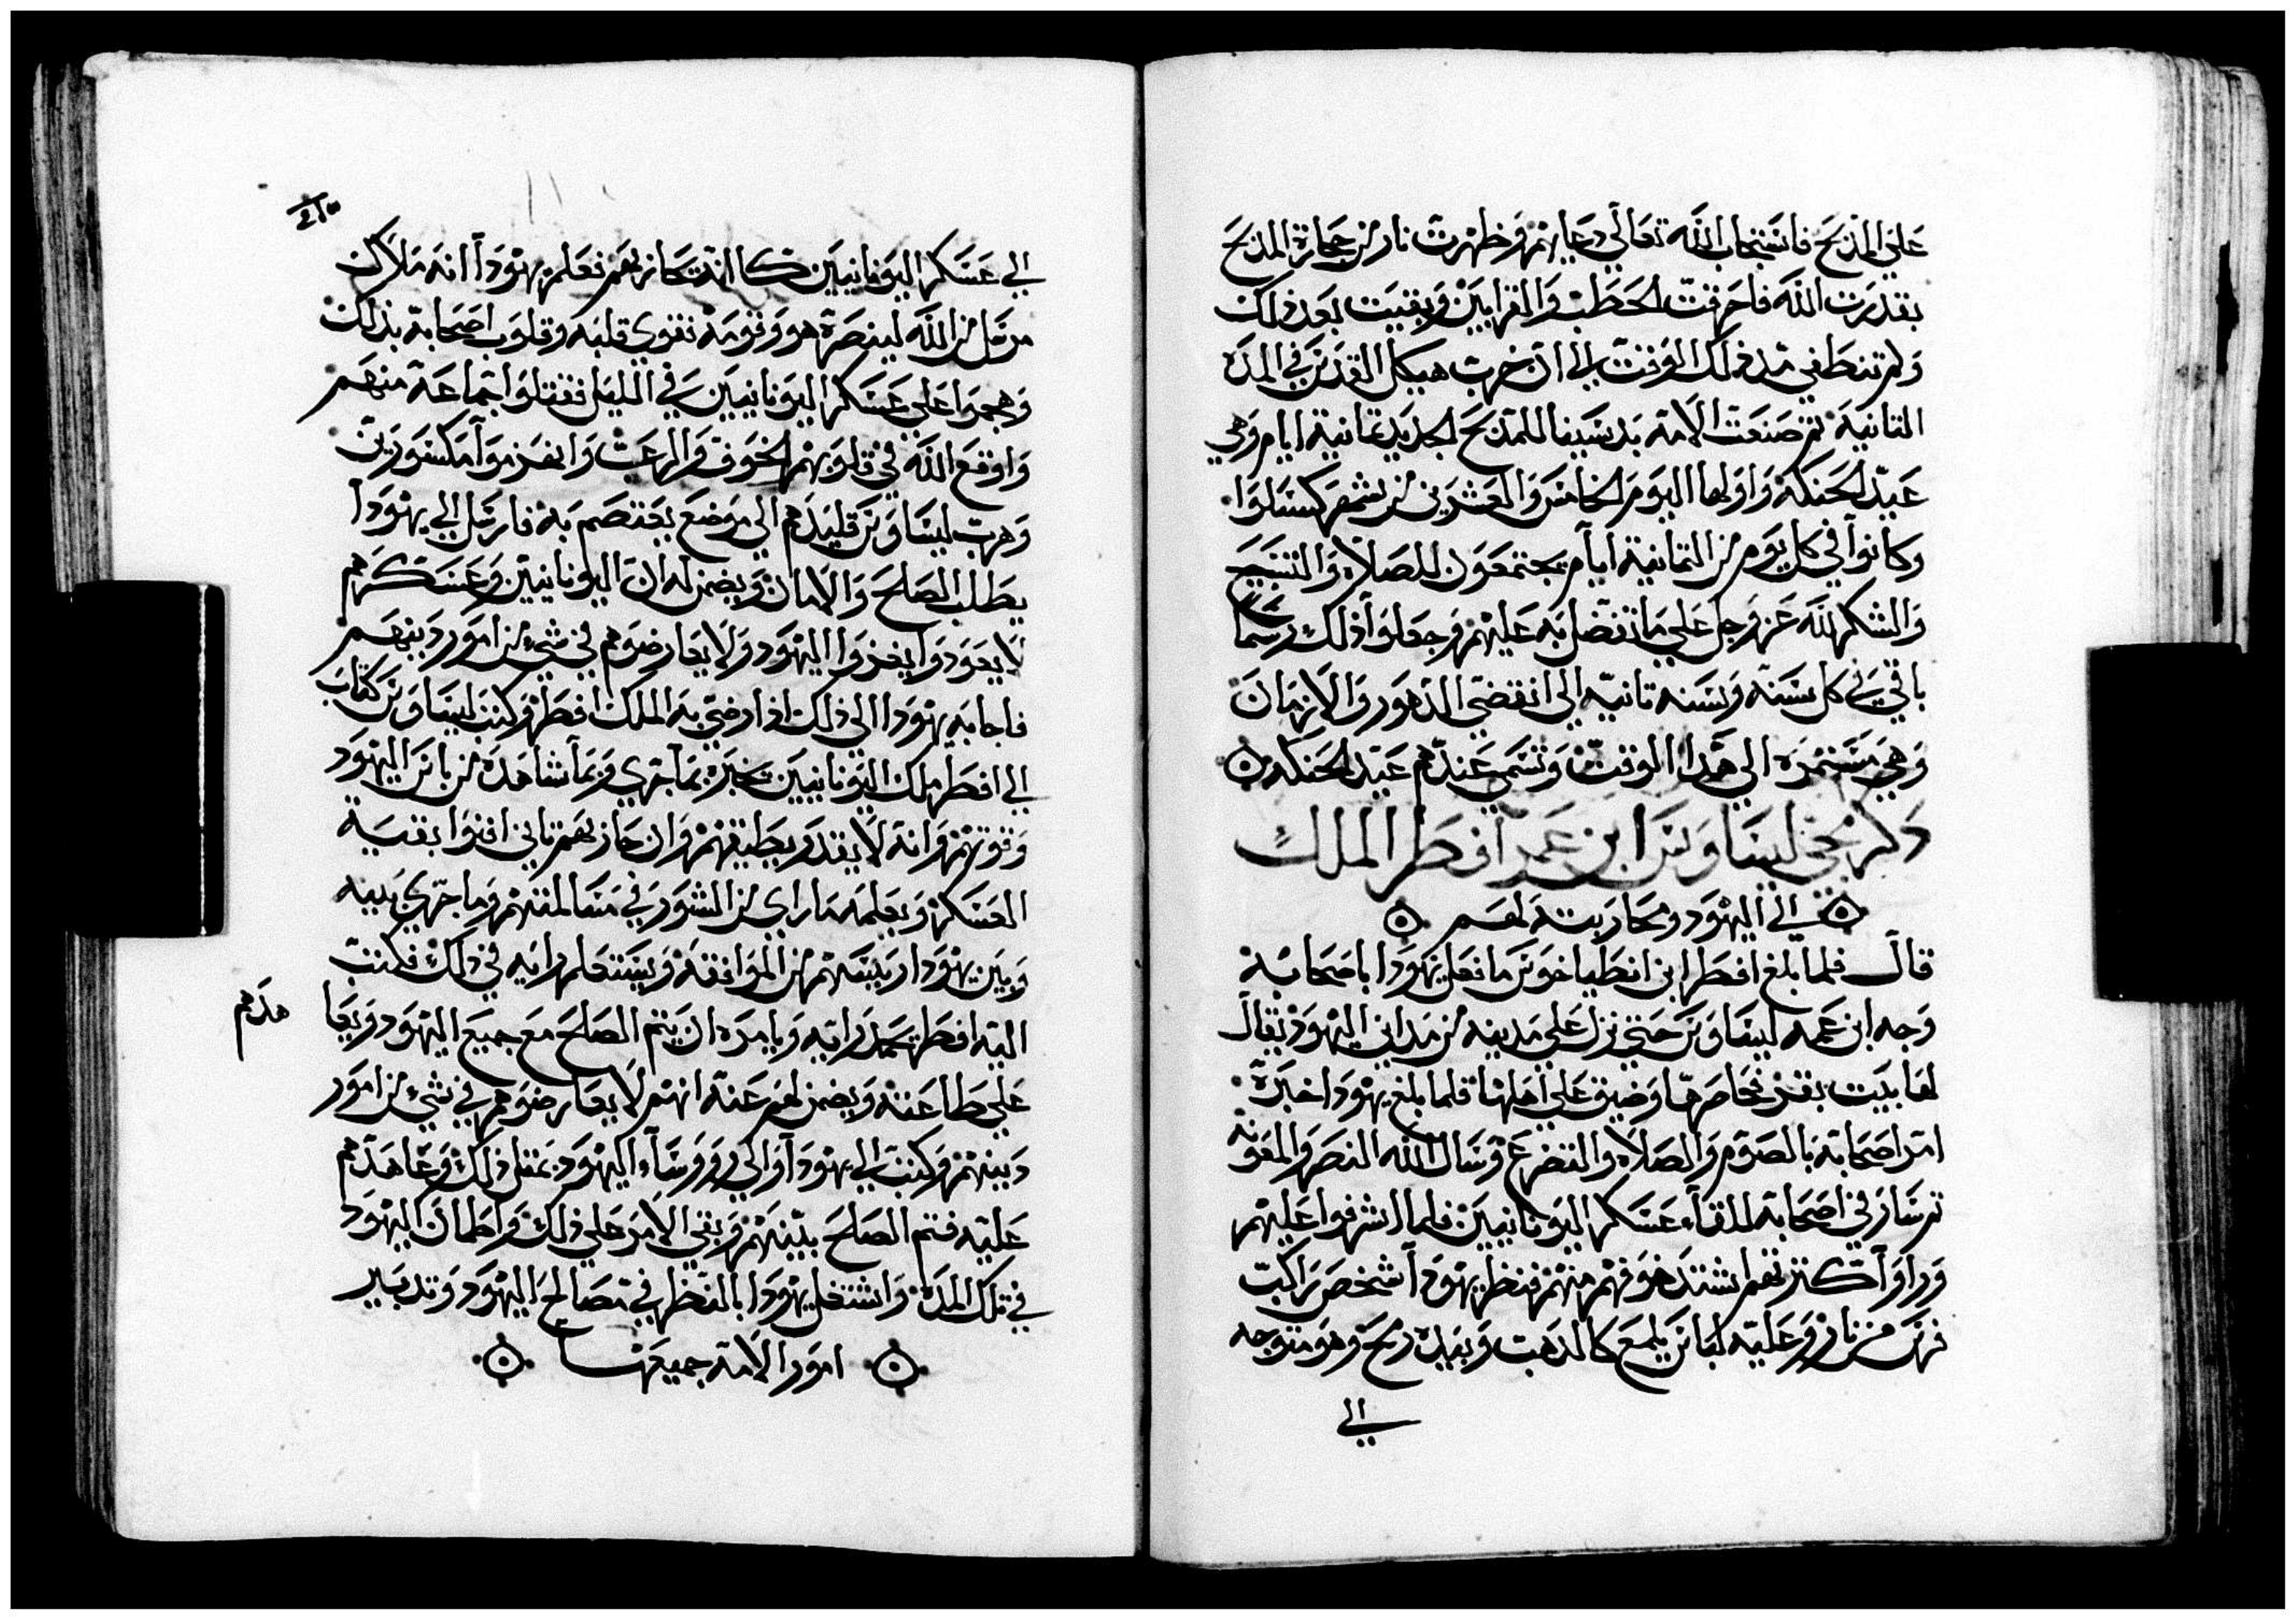 على المذبح فاستجاب الله تعالى دعايهم وظهرت نار من حجارة المذبح
بقدرت الله فاحرقت الحطب والقرابين وبقيت بعد ذلك
ولم تنطفي مند ذلك الوقت الى ان خرب هيكل القدس في المدة
التانية تم صنعت الامة بدشينا للمذبح الجديد تمانية ايام وهي
عيد الحنكة واولها اليوم الخامس والعشرين من شهر كسلوا
وكانوا في كل يوم من التمانية ايام يجتمعون للصلاة والتسبيح
والشكر لله عز وجل على ما تفضل به عليهم وجعلوا ذلك رسما
باقي في كل سنة وسنه تانيه الى انقضى الدهور والازمان
وهي مستمرة الى هدا الوقت وتسمى عندهم عيد الحنكه
دكر مجي ليساوس ابن عم افطر الملك
الى اليهود ومحاربته لهم
قال فلما بلغ افطر ابن انطياخوس ما فعل يهودا باصحابه
وجه ابن عمه ليساوس حتى نزل على مدينه من مداين اليهود يقال
لها بيت بقر فحاصرها وضيق على اهلها فلما بلغ يهودا خبره
امر اصحابه بالصوم والصلاة والتضرع وسال الله النصر والمعونه
تم سار في اصحابه للقاء عسكر اليونانيين فلما اشرفوا عليهم
وراوا كترتهم اشتد خوفهم منهم فنظر يهودا شخص راكب
فرس من نار وعليه لباس يلمع كالدهب وبيده رمح وهو متوجه
الى
الى عسكر اليونانيين كانه محاربهم فعلم يهودا انه ملاك
مرسل من الله لينصره هو وقومه فقوي قلبه وقلوب اصحابه بذلك
وهجموا على عسكر اليونانيين في الليل فقتلوا جماعة منهم
واوقع الله في قلوبهم الخوف والرعب وانهزموا مكسورين
وهرب ليساوس قليدهم الى موضع يعتصم به فارسل الى يهودا
يطلب الصلح والامان ويضمن له ان اليونانيين وعسكرهم
لا يعودوا يغزوا اليهود ولا يعارضوهم في شيء من امور دينهم
فاجابه يهودا الى ذلك اذا رضي به الملك افطر وكتب ليساوس كتاب
الى افطر ملك اليونانيين يخبره بما جرى وبما شاهده من باس اليهود
وقوتهم وانه لا يقدر يطيقهم وان حاربهم تاني افنوا بقية
العسكر ويعلمه ما راى من الشور في مسالمتهم وما جرى بينه
وبين يهودا رييسهم من الموافقة ويستعلم رايه في ذلك فكتب
اليه افطر يحمد رايه ويامره ان يتم الصلح مع جميع اليهود ويعا
هدهم
على طاعته ويضمن لهم عنه انهم لا يعارضوهم في شيء من امور
دينهم وكتب الى يهودا والى رووساء اليهود بمثل ذلك وعاهدهم
عليه فتم الصلح بينهم وبقي الامر على ذلك واطمان اليهود
في تلك المدة واشتغل يهودا بالنظر في مصالح اليهود وتدبير
امور الامة جميعها